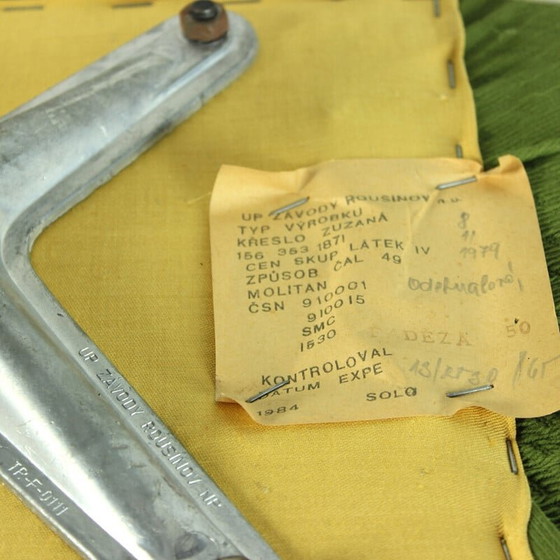 UP ZÁVODY ROUSÍNOV n.p.
TYP VÝROBKU
KŘESLO ZUZANA
156 353 1871
CEN SKUP LÁTEK IV
ZPŮSOB ČAL 49
MOLITAN
ČSN 910001
910015
SMC
1530 50
KONTROLOVAL
DATUM EXPE
1984 SOLO
1979
UP ZÁVODY ROUSÍNOV NP
TP-F-0111